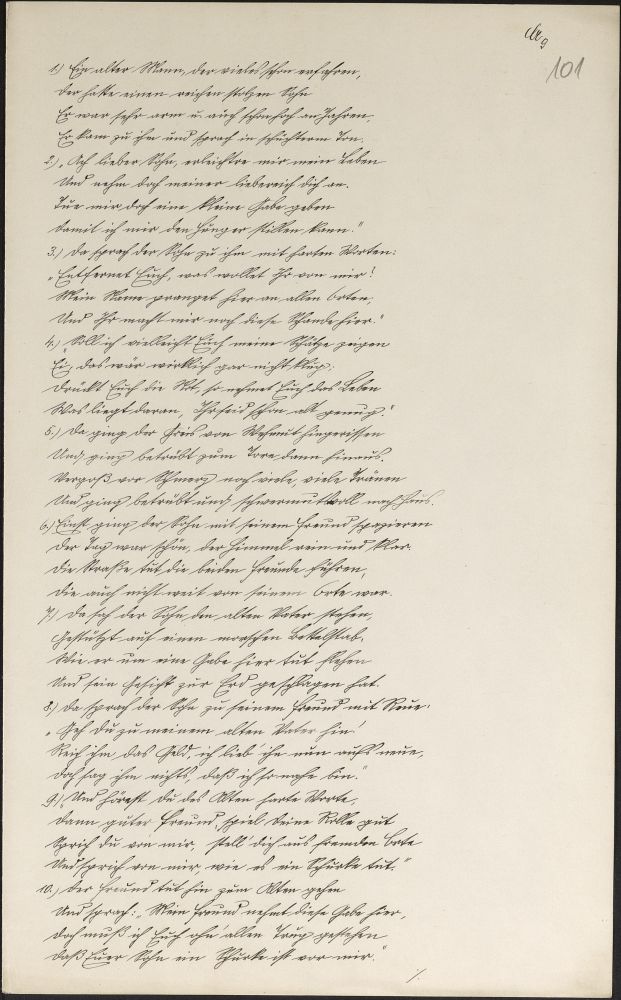 101
1.) Ein alter Mann, der vieles schon erfahren,
Der hatte einen reichen stolzen Sohn
Er war sehr arm u. auch schon hoch an Jahren,
Er kam zu ihm und sprach in schüchterm Ton.
2.) „Ach lieber Sohn, erleichtre mir mein Leben
Und nehm doch meiner liebereich dich an.
Tue mir doch eine kleine Gabe geben
damit ich mir den Hunger stillen kann."
3.) Da sprach der Sohn zu ihm mit harten Worten:
„Entfernet Euch, was wollet Ihr von mir!
Mein Name pranget hier an allen Orten,
Und Ihr macht mir noch diese Schande hier."
4.) „Soll ich vielleicht Euch meine Schätze zeigen
Ei, das wär wirklich gar nicht klug.
Drückt Euch die Not, so nehmet Euch das Leben
Was liegt daran, Ihr seid schon alt genug."
5.) Da ging der Greis von Wehmut hingerissen
Und ging betrübt zum Tore dann hinaus.
Vergoß vor Schmerz noch viele, viele Tränen
Und ging betrübt und schwermutsvoll nach Haus.
6.) Einst ging der Sohn mit seinem Freund spazieren
Der Tag war schön, der Himmel rein und klar.
Die Straße tut die beiden Freunde führen,
Die auch nicht weit von seinem Orte war.
7.) Da sah der Sohn den alten Vater stehen,
Gestützt auf einen morschen Bettelstab,
Wie er um eine Gabe hier tut flehen
Und sein Gesicht zur Erd geschlagen hat.
8.) Da sprach der Sohn zu seinem Freund mit Reue:
„Geh du zu meinem alten Vater hin!
Reich ihm das Geld, ich lieb' ihn nun aufs neue,
doch sag ihm nichts, daß ich so nahe bin."
9.) „Und hörest du des Alten harte Worte,
dann guter Freund, spiel deine Rolle gut
Sprich du von mir, stell' dich aus fremden Orte
Und sprich von mir, wie es ein Schurke tut."
10.) Der Freund tut hin zum Alten gehen
Und sprach: „Mein Freund nehmt diese Gabe hier,
Doch muß ich Euch ohn' allen Trug gestehen
Daß Euer Sohn ein Schurke ist vor mir."
./.